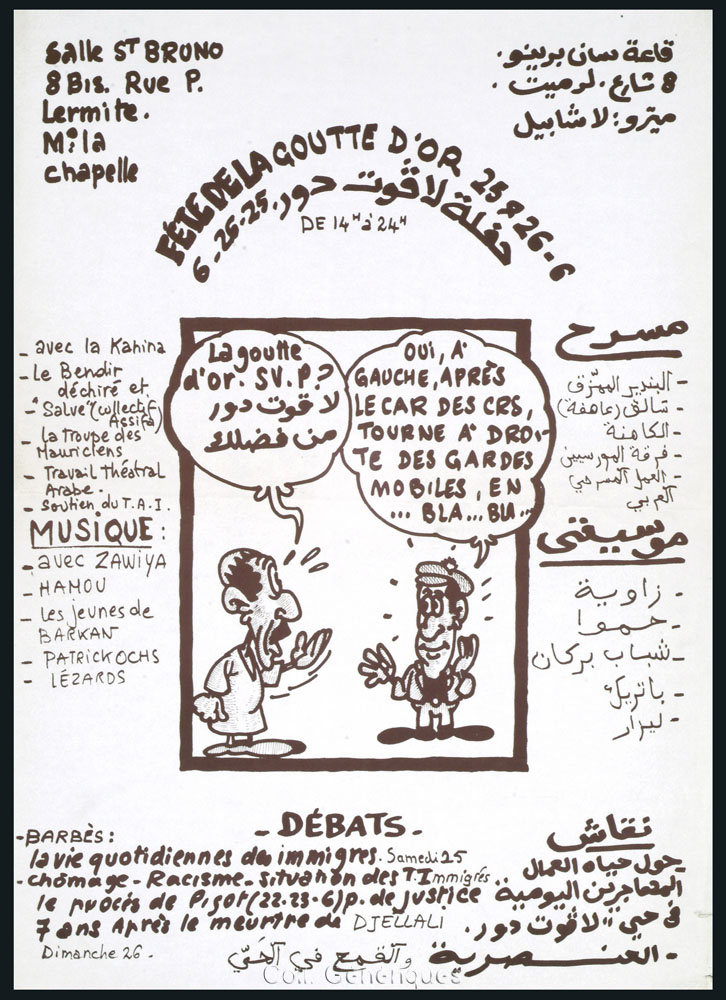 Salle ST BRUNO
8 Bis. Rue P.
Lermite.
M° la
chapelle
قاعة سان برينو.
8 شارع. لرميت.
ميترو: لاشابيل
FÊTE DE LA GOUTTE D'OR 25 & 26-6
حفلة لاڤوت دور. 25-26-6
DE 14H à 24H
- avec la Kahina
- Le Bendir
déchiré et
- "Salve" (collectif
Assifa)
- la Troupe des
Mauriciens
- Travail Théatral
Arabe.
- Soutien du T.A.I.
MUSIQUE:
- avec ZAWIYA
- HAMOU
- Les jeunes de
BARKAN
- PATRICK OCHS
- LÉZARDS
La goutte
d'or. S.V.P.?
لا قوت دور
من فضلك
OUI, A'
GAUCHE, APRÈS
LE CAR DES CRS,
TOURNE A' DROI-
TE DES GARDES
MOBILES, EN
... BLA... BLA...
مسرح
- البندير الممزق
- سالڤ (عاصفة)
- الكاهنة
- فرقة الموريسيين
- العمل المسرحي
العربي
موسيقى
- زاوية
- حموا
- شباب بركان
- باتريك
- ليزار
- DÉBATS -
- BARBÈS:
la vie quotidiennes des immigres. Samedi 25
- chômage - Racisme - situation des T. Immigrés
le procès de Pigot (22-23-6) p. de justice
7 ans Après le meurtre de DJELLALI
Dimanche 26.
نقاش
- حول حياة العمال
المهاجرين اليومية
في حي "لاقوت دور.
- العنصرية والقمع في الحَيّ
Coll. Génériques